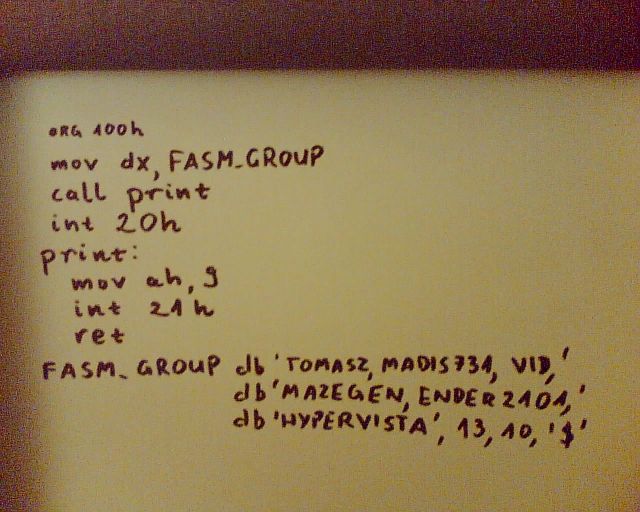 ORG 100h
mov dx, FASM_GROUP
call print
int 20h
print:
mov ah, 9
int 21h
ret
FASM_GROUP db 'TOMASZ, MADIS731, VID,'
db 'MAZEGEN, ENDER2101,'
db 'HYPERVISTA', 13, 10, '$'